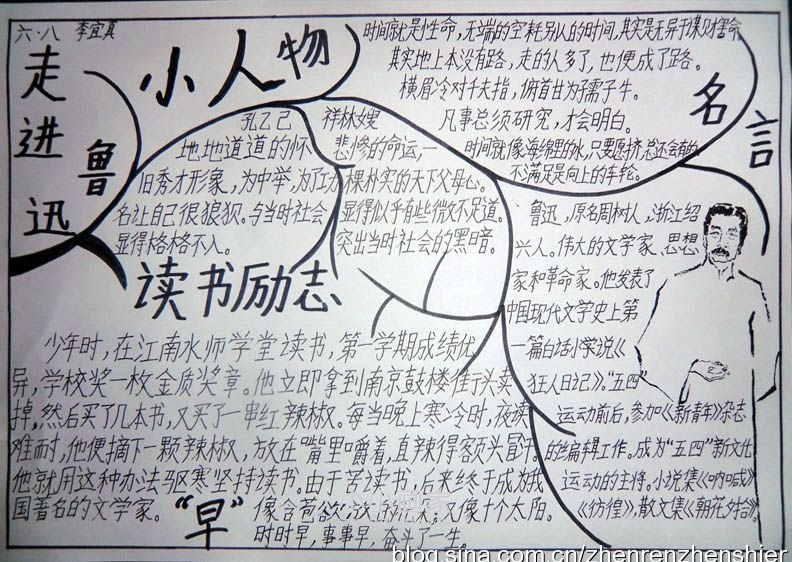 六·八 李宜真
走进鲁迅
小人物
孔乙己
地地道道的怀
旧秀才形象，为中举，为了功
名让自己很狼狈。与当时社会
显得格格不入。
祥林嫂
悲惨的命运，一
棵朴实的天下父母心。
显得似乎有些微不足道。
突出当时社会的黑暗。
名言
时间就是性命，无端的空耗别人的时间，其实是无异于谋财害命
其实地上本没有路，走的人多了，也便成了路。
横眉冷对千夫指，俯首甘为孺子牛。
凡事总须研究，才会明白。
时间就像海绵里的水，只要愿挤，总还会有的
不满足是向上的车轮。
鲁迅，原名周树人，浙江绍
兴人。伟大的文学家、思想
家和革命家。他发表了
中国现代文学史上第
一篇白话小学说《
狂人日记》。“五四”
运动前后，参加《新青年》杂志
的编辑工作。成为“五四”新文化
运动的主将。小说集《呐喊》
《彷徨》，散文集《朝花夕拾》。
读书励志
少年时，在江南水师学堂读书，第一学期成绩优
异，学校奖一枚金质奖章。他立即拿到南京鼓楼街头卖
掉，然后买了几本书，又买了一串红辣椒。每当晚上寒冷时，夜读
难耐，他便摘下一颗辣椒，放在嘴里嚼着，直辣得额头冒汗。
他就用这种办法驱寒坚持读书。由于苦读书，后来终于成为我
国著名的文学家。
“早”
像含苞欲放的 又像十个太阳。
时时早，事事早，奋斗了一生。
blog.sina.com.cn/zhenrenzhenshier